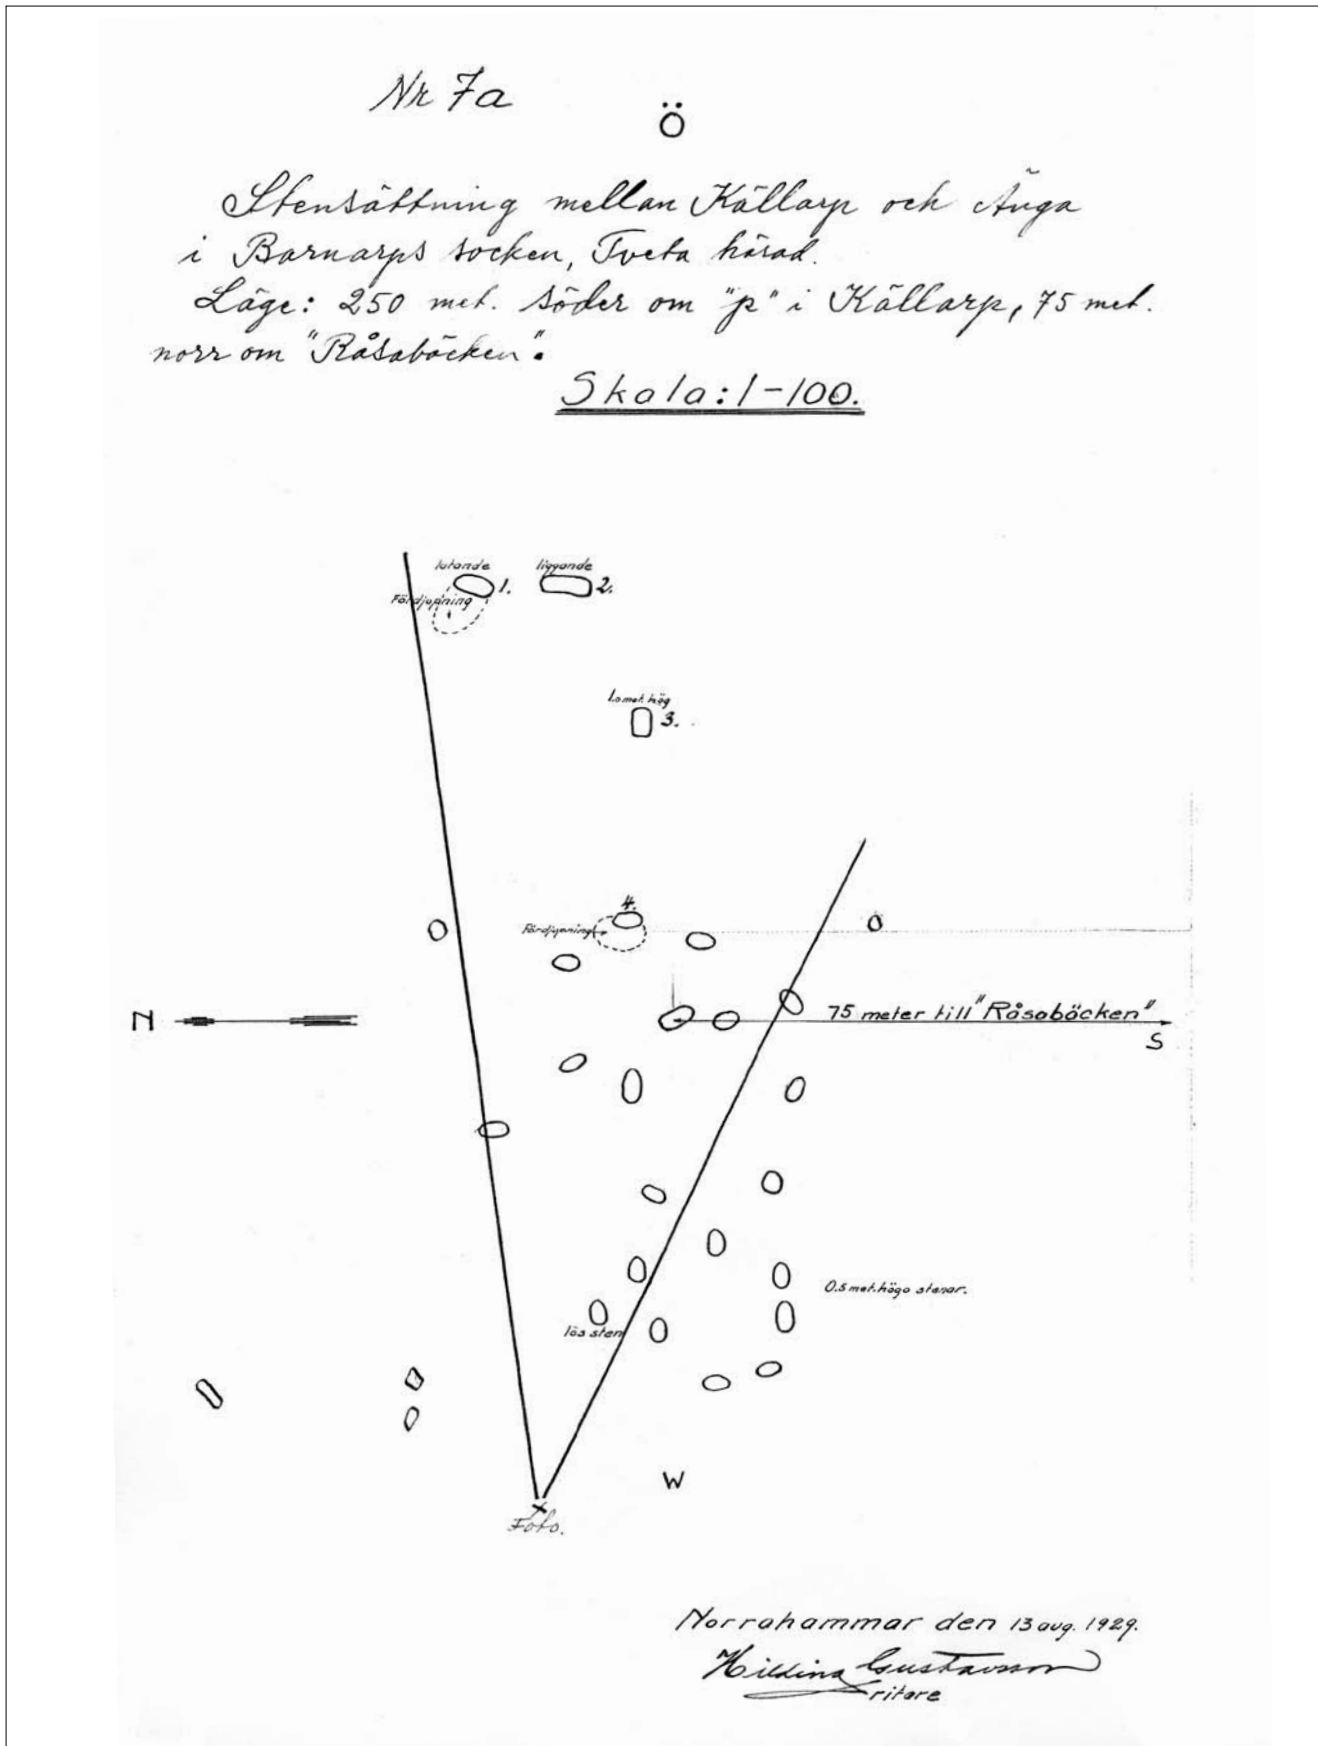 Nr 7a
Ö
Stensättning mellan Källarp och Änga
i Barnarps socken, Tveta härad.
Läge: 250 met. söder om "p" i Källarp, 75 met.
norr om "Råsabäcken".
Skala: 1-100.
lutande
1.
liggande
2.
Fördjupning
1.0 met. hög
3.
4.
Fördjupning
N
75 meter till "Råsabäcken"
S
0.5 met. höga stenar.
lös sten
W
Foto.
Norrahammar den 13 aug. 1929.
Hilding Gustavsson
ritare